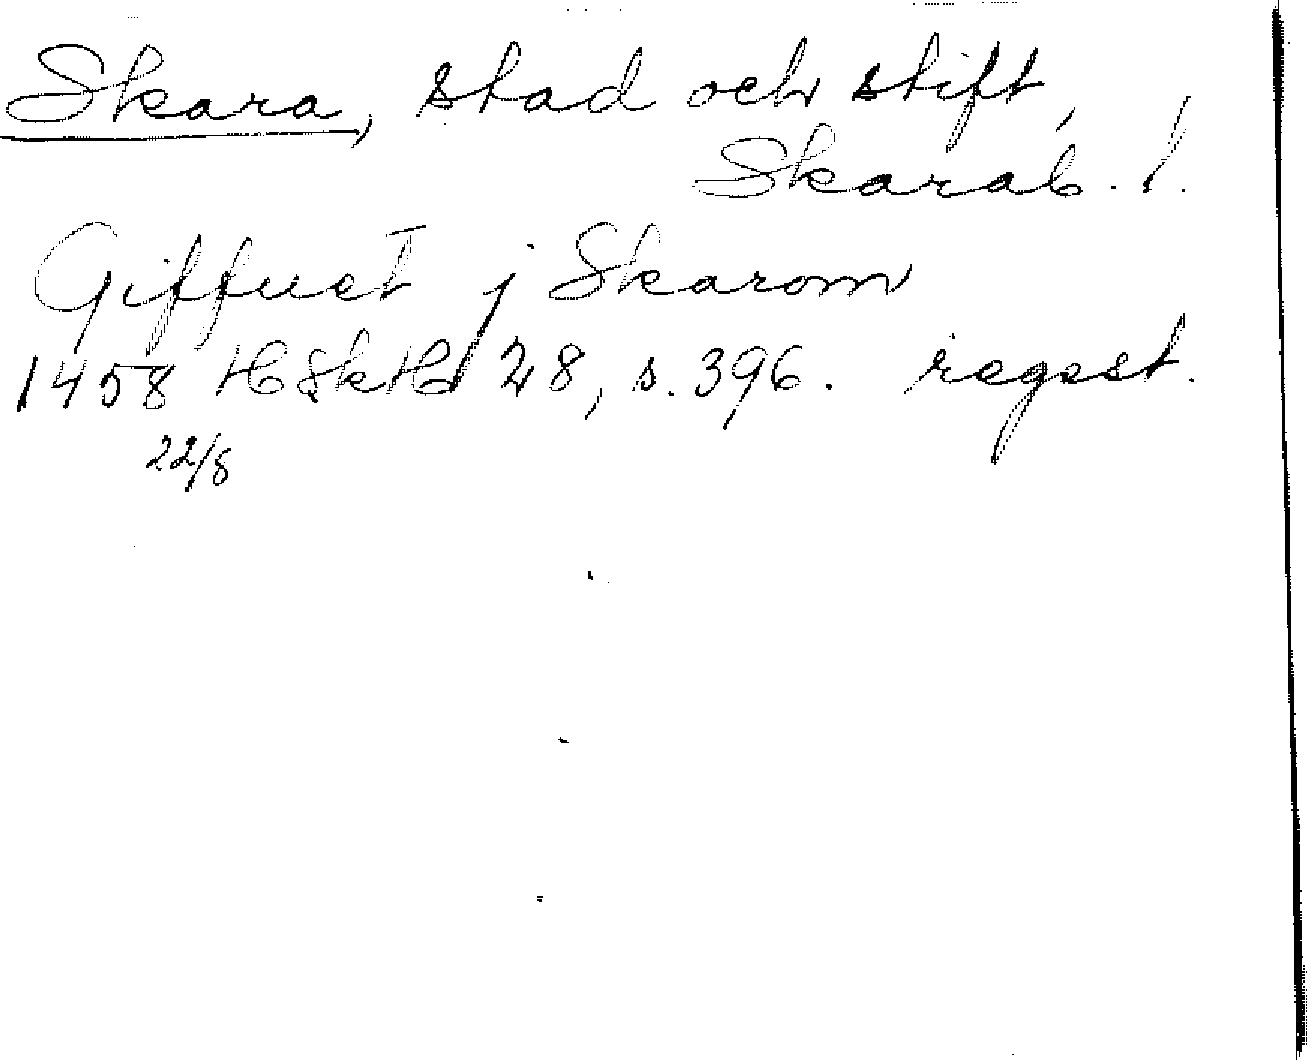 Skara, stad och stift,
Skarab. l.
Giffuet j Skarom
1458 HSkH 28, s. 396. regest.
22/8